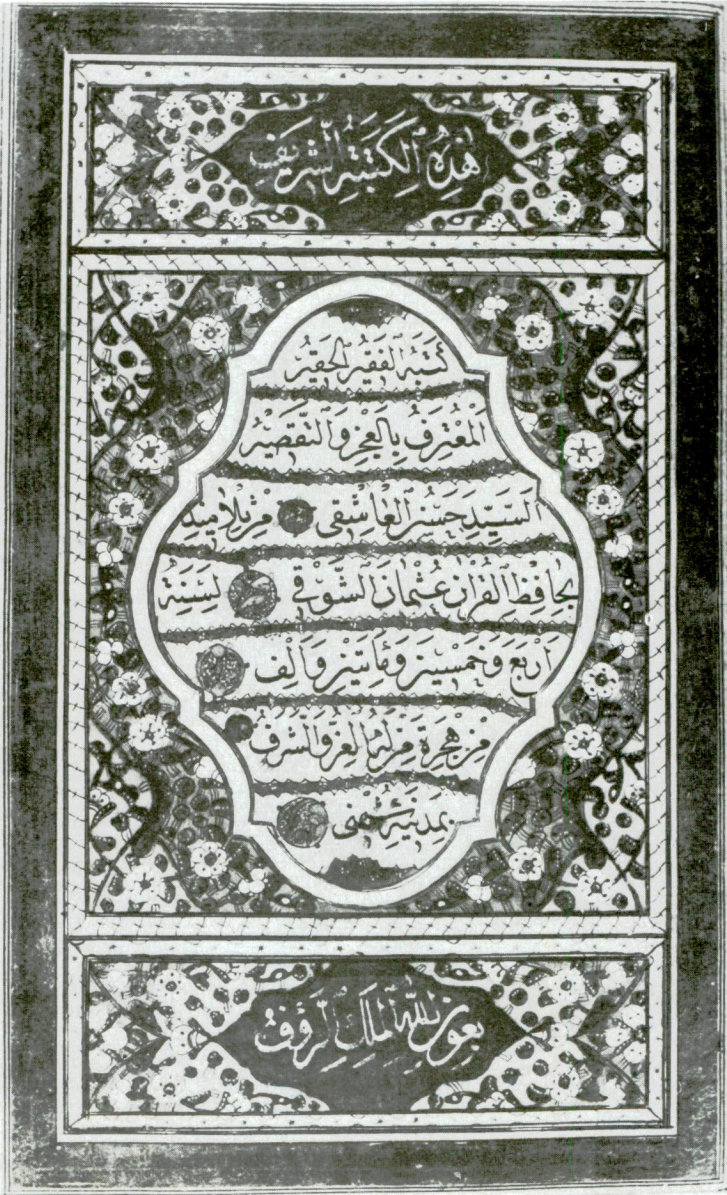 هٰذِهِ الْكَتَبَتِهِ الشَّرِيفِ
كَتَبَهُ الْفَقِيرُ الْحَقِيرُ
الْمُعْتَرِفُ بِالْعَجْزِ وَالتَّقْصِيْرِ
اَلسَّيِّدْ حَسَنْ الْعَاشِقِى مِنْ تِلَامِيدِ
بِحَافِظِ الْقُرْاٰنِ عُثْمَانَ الشَّوْقِى لِسَنَةِ
اَرْبَعَ وَخَمْسِيْنَ وَمِاَتَيْنِ وَاَلِف
مِنْ هِجْرَةِ مَنْ لَهُ الْعِزُّ وَالشَّرَفُ
بِمَدِيْنَةِ شُمْنِى
بِعَوْنِ اللّٰهِ الْمَلِكِ الرَّؤُفِ